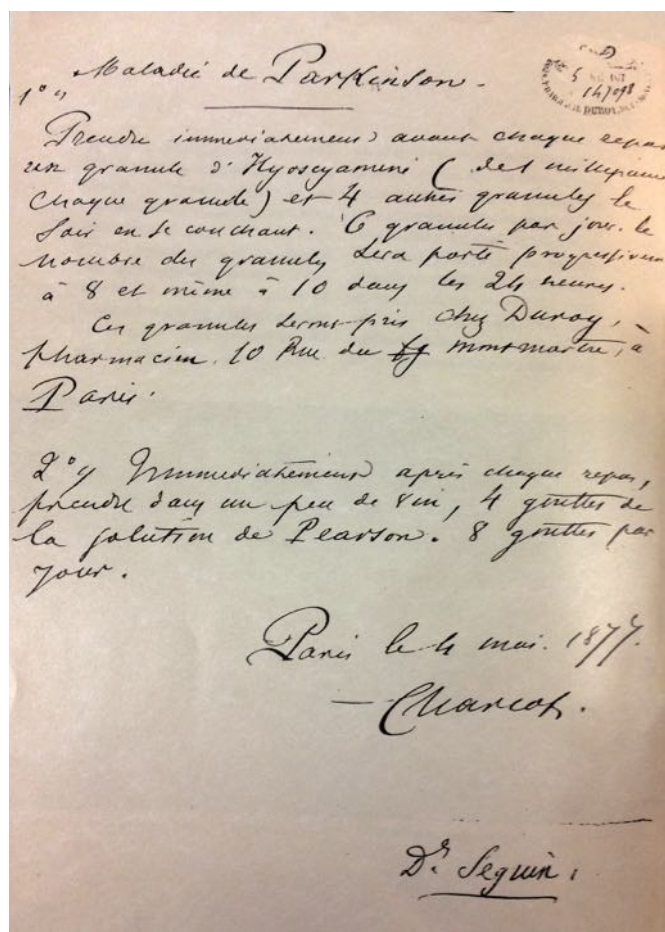 Maladie de Parkinson.
5
147098
1° "
Prendre immédiatement avant chaque repas
un granule d'Hyoscyamine ( de 1 milligramme
chaque granule) et 4 autres granules le
soir en se couchant. 6 granules par jour. le
nombre des granules sera porté progressivem
à 8 et même à 10 dans les 24 heures.
Ces granules seront pris chez Duroy,
pharmacien. 10 Rue du montmartre, à
Paris.
2° " Immédiatement après chaque repas,
prendre dans un peu de vin, 4 gouttes de
la solution de Pearson. 8 gouttes par
jour.
Paris le 4 mai. 1877.
— Charcot.
Dr. Seguin.